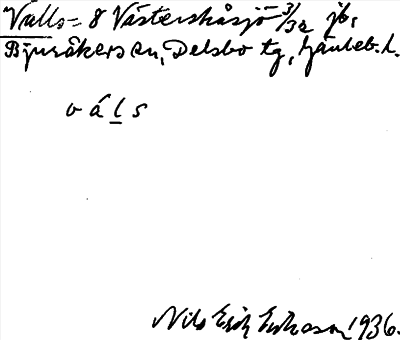 Valls = 8 Västerskåsjö 3/32 jb,
Bjuråkers sn, Delsbo tg, Gävleb. l.
v á l s
Nils Erik Eriksson 1936.